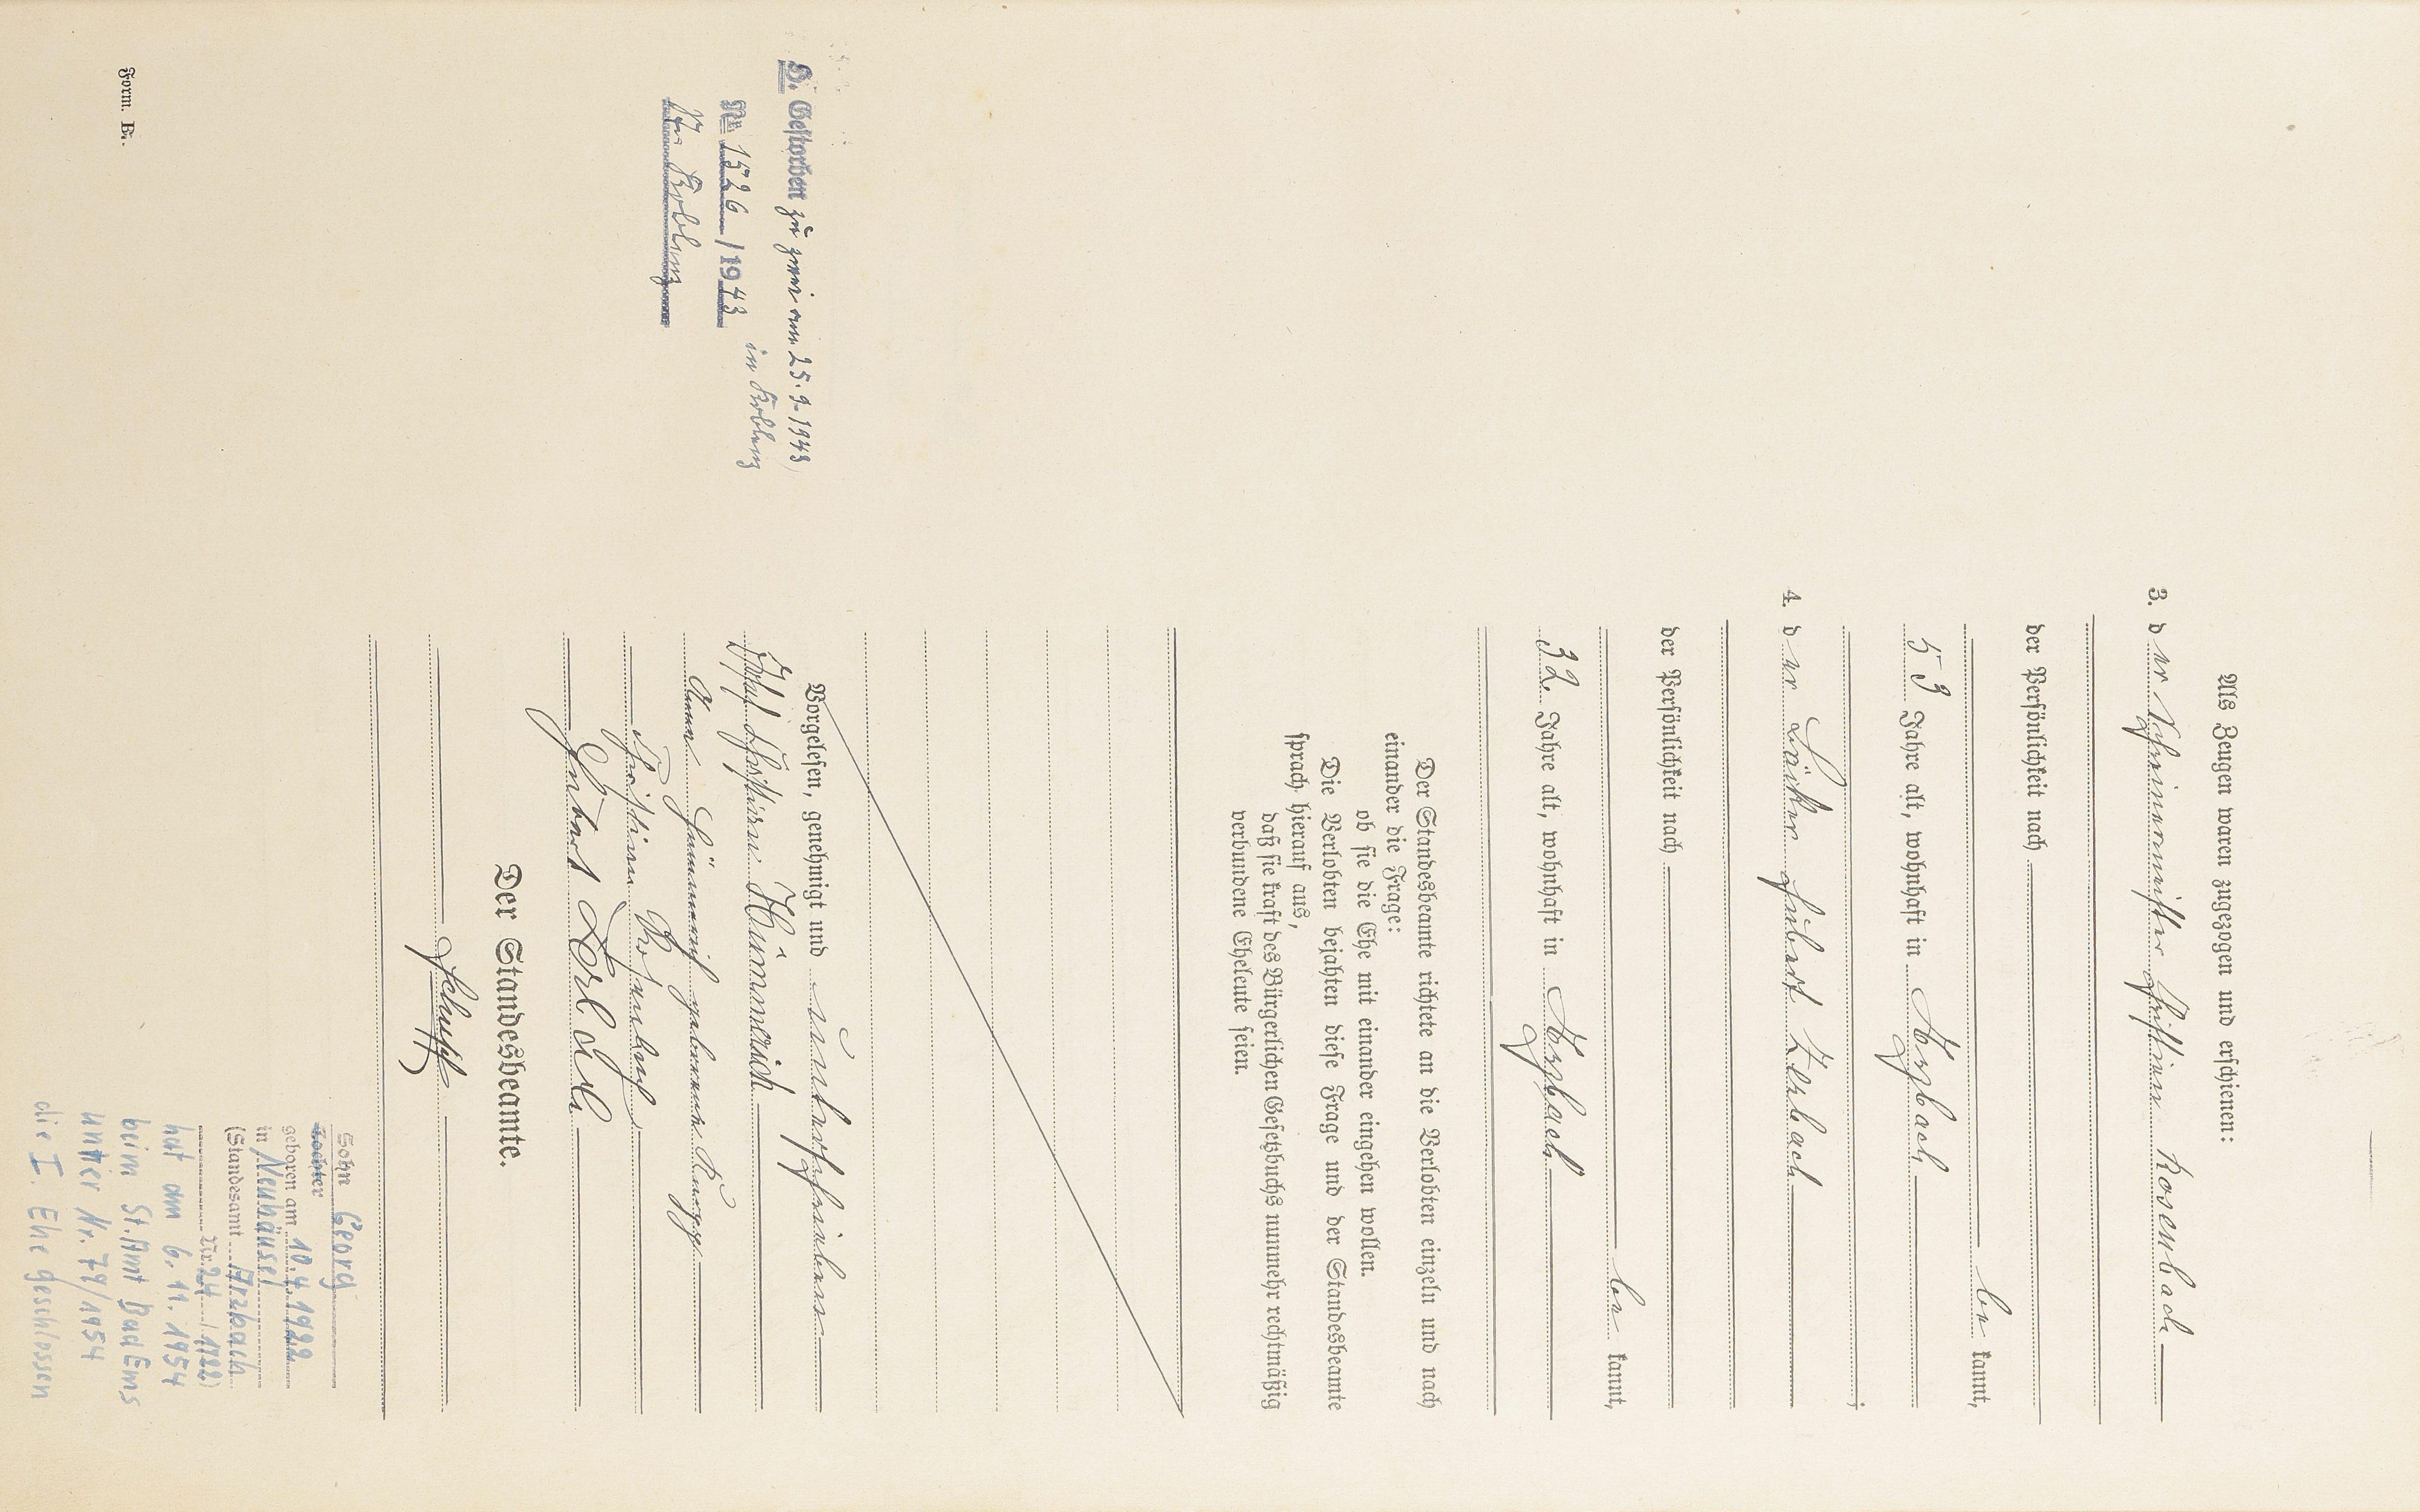 Als Zeugen waren zugezogen und erschienen:
3. der Schreinermeister Christian Rosenbach
der Persönlichkeit nach
be kannt,
53 Jahre alt, wohnhaft in Arzbach
4. der Bäcker Hubert Zerbach
;
der Persönlichkeit nach
be kannt,
32 Jahre alt, wohnhaft in Arzbach
Der Standesbeamte richtete an die Verlobten einzeln und nach
einander die Frage:
ob sie die Ehe mit einander eingehen wollen.
Die Verlobten bejahten diese Frage und der Standesbeamte
sprach hierauf aus,
daß sie kraft des Bürgerlichen Gesetzbuchs nunmehr rechtmäßig
verbundene Eheleute seien.
Vorgelesen, genehmigt und unterschrieben
Josef Christian Kümmerich
Anna Kümmerich geborene
Christian Rosenbach
Hubert Zerbach
Der Standesbeamte.
B. Gestorben zu zwei am 25.9.1943
in Koblenz
Nr. 1526/1943
Koblenz
Form. B.
Sohn Georg
Tochter
geboren am 10.4.1922
in Neuhäusel
(Standesamt Arzbach
Nr. 24/1922)
hat am 6.11.1954
beim St. Amt Bad Ems
unter Nr. 78/1954
die I. Ehe geschlossen